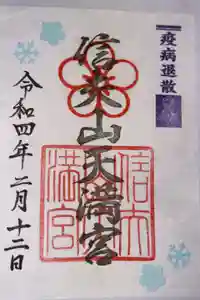 疫病退散
信夫山天満宮
令和四年二月十二日
信夫
満宮